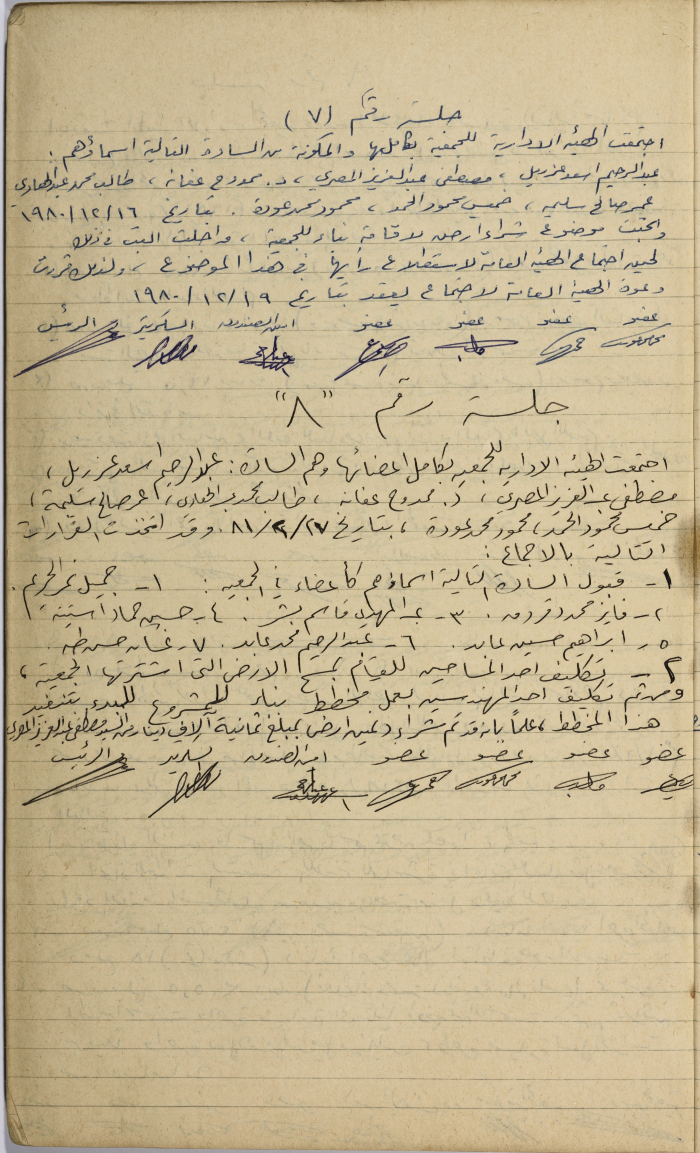 جلسة رقم (٧)
اجتمعت الهيئة الادارية للجمعية بكاملها والمكونة من السادة التالية اسماؤهم :
عبدالرحيم اسعد عزريل ، مصطفى عبدالعزيز المصري ، د. ممدوح عفانه ، طالب محمد عبدالهادي
عمر صالح سليمه ، خميس محمود الحمد ، محمود محمد عودة . بتاريخ ١٩٨٠/١٢/١٦
وبحثت موضوع شراء ارض لاقامة بناء للجمعية ، واجلت البت في ذلك
لحين اجتماع الهيئة العامة لاستطلاع رأيها في هذا الموضوع ، ولذلك قررت
دعوة الهيئة العامة لاجتماع يعقد بتاريخ ١٩٨٠/١٢/١٩
عضو عضو عضو عضو امين الصندوق السكرتير الرئيس
جلسة رقم "٨"
اجتمعت الهيئه الاداريه للجمعيه بكامل اعضائها وهم السادة : عبدالرحيم اسعد عزريل ،
مصطفى عبدالعزيز المصري ، د. ممدوح عفانه ، طالب محمد عبدالهادي ، عمر صالح سليمة ،
خميس محمود الحمد ، محمود محمد عودة ، بتاريخ ٨١/٢/٢٧ . وقد اتخذت القرارات
التالية بالاجماع :
١- قبول السادة التالية اسماؤهم كأعضاء في الجمعيه : ١- جميل نمر .
٢- فايز محمد . ٣- عبد المهدي قاسم بشر . ٤- حسين حماد
٥- ابراهيم حسين عابد . ٦- عبدالرحيم محمد عابد . ٧- غسان حسن طه .
٢- تكليف احد المساحين للقيام بمسح الارض التي اشترتها الجمعية ،
ومن ثم تكليف احد المهندسين بعمل مخطط بناء للمشروع للبدء بتنفيذ
هذا المخطط ، علماً بانه قد تم شراء ارض بمبلغ ثمانية آلاف دينار من السيد مصطفى عبدالعزيز المصري
عضو عضو عضو عضو امين الصندوق الرئيس